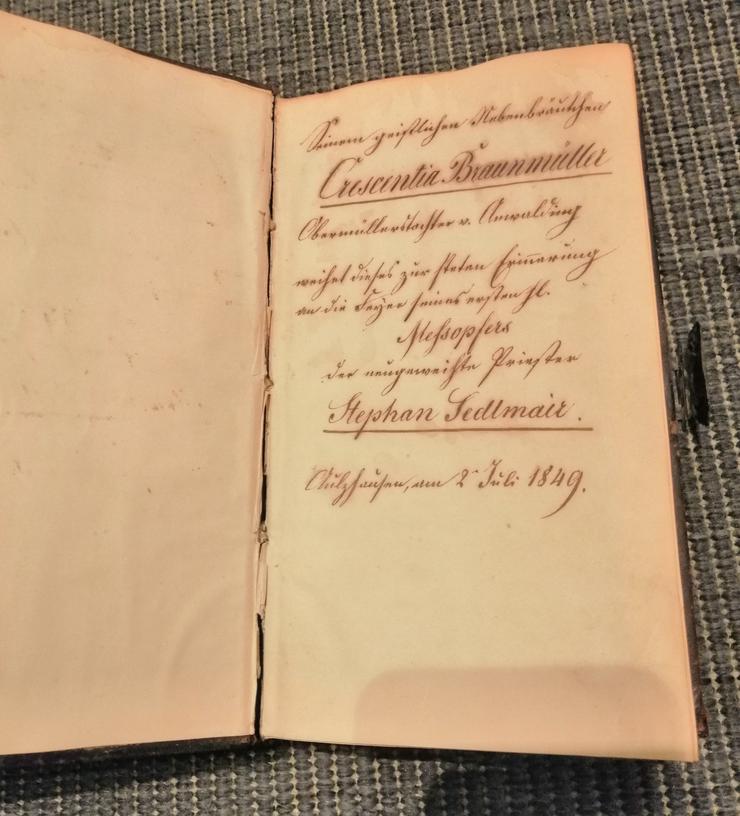 Seinem geistlichen Nebenbräutchen
Crescentia Braunmüller
Obermüllerstochter v. Anwalding
weihet dieses zur steten Erinnerung
an die Feyer seines ersten hl.
Meßopfers
der neugeweihte Priester
Stephan Sedlmair.
Aulzhausen, am 2 Juli 1849.